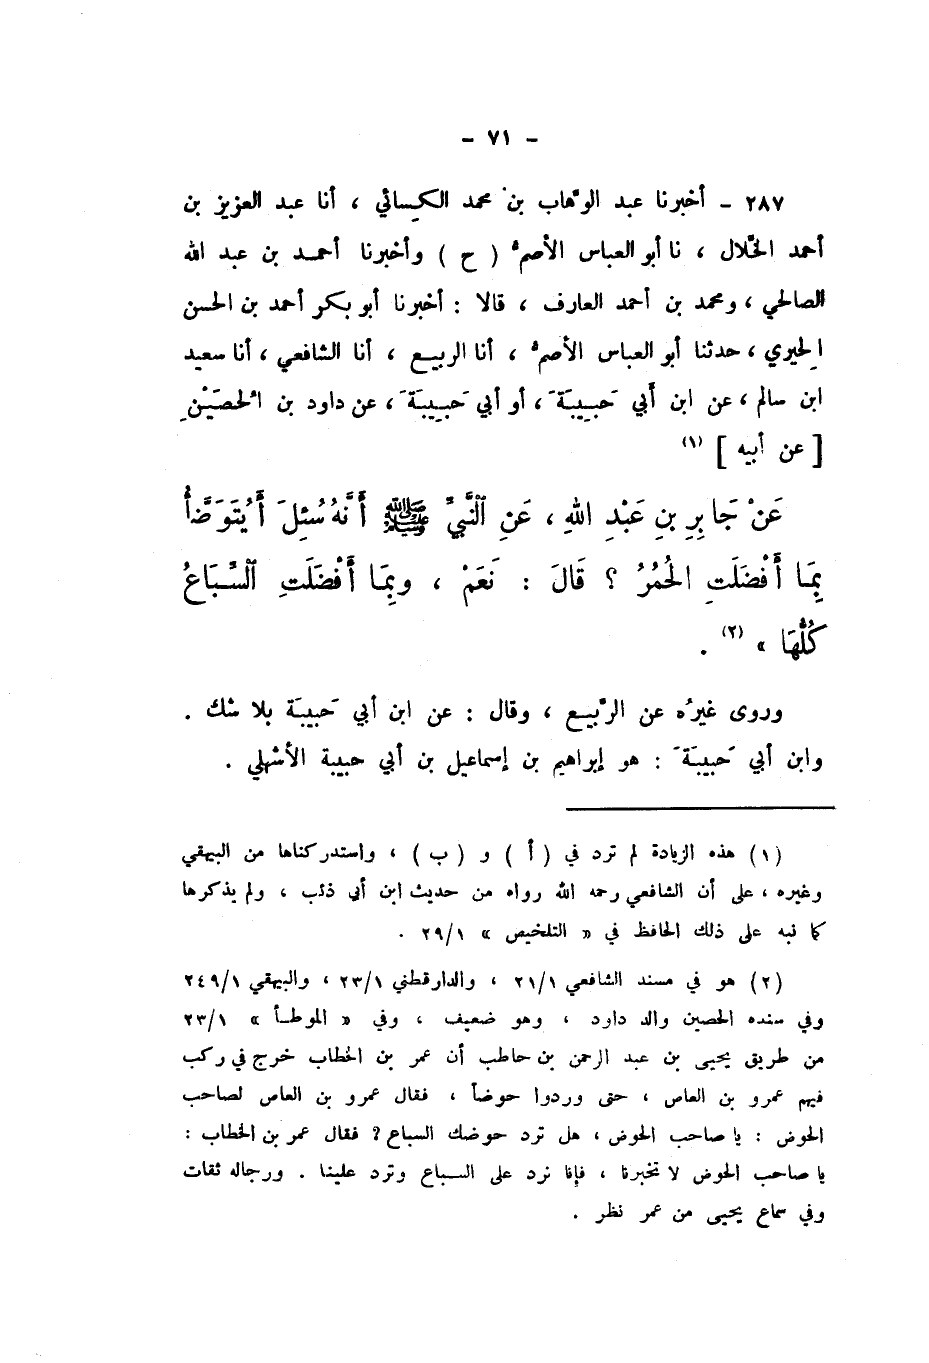 - ٧١ -
٢٨٧ - أخبرنا عبد الوهّاب بن محمد الكِسائي ، أنا عبد العزيز بن
أحمد الخلّال ، نا أبو العباس الأصمُّ ( ح ) وأخبرنا أحمد بن عبد الله
الصالحي ، ومحمد بن أحمد العارف ، قالا : أخبرنا أبو بكر أحمد بن الحسن
الحِيري ، حدثنا أبو العباس الأصمُّ ، أنا الربيع ، أنا الشافعي ، أنا سعيد
ابن سالم ، عن ابن أبي حَبِيبَةَ ، أو أبي حَبِيبَةَ ، عن داود بن الْحصَيْنِ
[ عن أبيه ] (١)
عَنْ جَابِرِ بنِ عَبْدِ اللهِ ، عَنِ ٱلنَّبيِّ ﷺ أَنَّهُ سُئِلَ أَيُتَوَضَّأُ
بِمَا أَفْضَلَتِ الْحُمُرُ ؟ قَالَ : نَعَمْ ، وبِمَا أَفْضَلَتِ ٱلسِّبَاعُ
كُلُّهَا » (٢) .
وروى غيرُه عن الرّبيع ، وقال : عن ابن أبي حَبيبَة بلا شك .
وابن أبي حَبيبَةَ : هو إبراهيم بن إسماعيل بن أبي حبيبة الأشهلي .
(١) هذه الزيادة لم ترد في ( أ ) و ( ب ) ، واستدركناها من البيهقي
وغيره ، على أن الشافعي رحمه الله رواه من حديث ابن أبي ذئب ، ولم يذكرها
كما نبه على ذلك الحافظ في « التلخيص » ٢٩/١ .
(٢) هو في مسند الشافعي ٢١/١ ، والدارقطني ٢٣/١ ، والبيهقي ٢٤٩/١
وفي سنده الحصين والد داود ، وهو ضعيف ، وفي « الموطأ » ٢٣/١
من طريق يحيى بن عبد الرحمن بن حاطب أن عمر بن الخطاب خرج في ركب
فيهم عمرو بن العاص ، حتى وردوا حوضاً ، فقال عمرو بن العاص لصاحب
الحوض : يا صاحب الحوض ، هل ترد حوضك السباع ؟ فقال عمر بن الخطاب :
يا صاحب الحوض لا تخبرنا ، فإنا نرد على السباع وترد علينا . ورجاله ثقات
وفي سماع يحيى من عمر نظر .